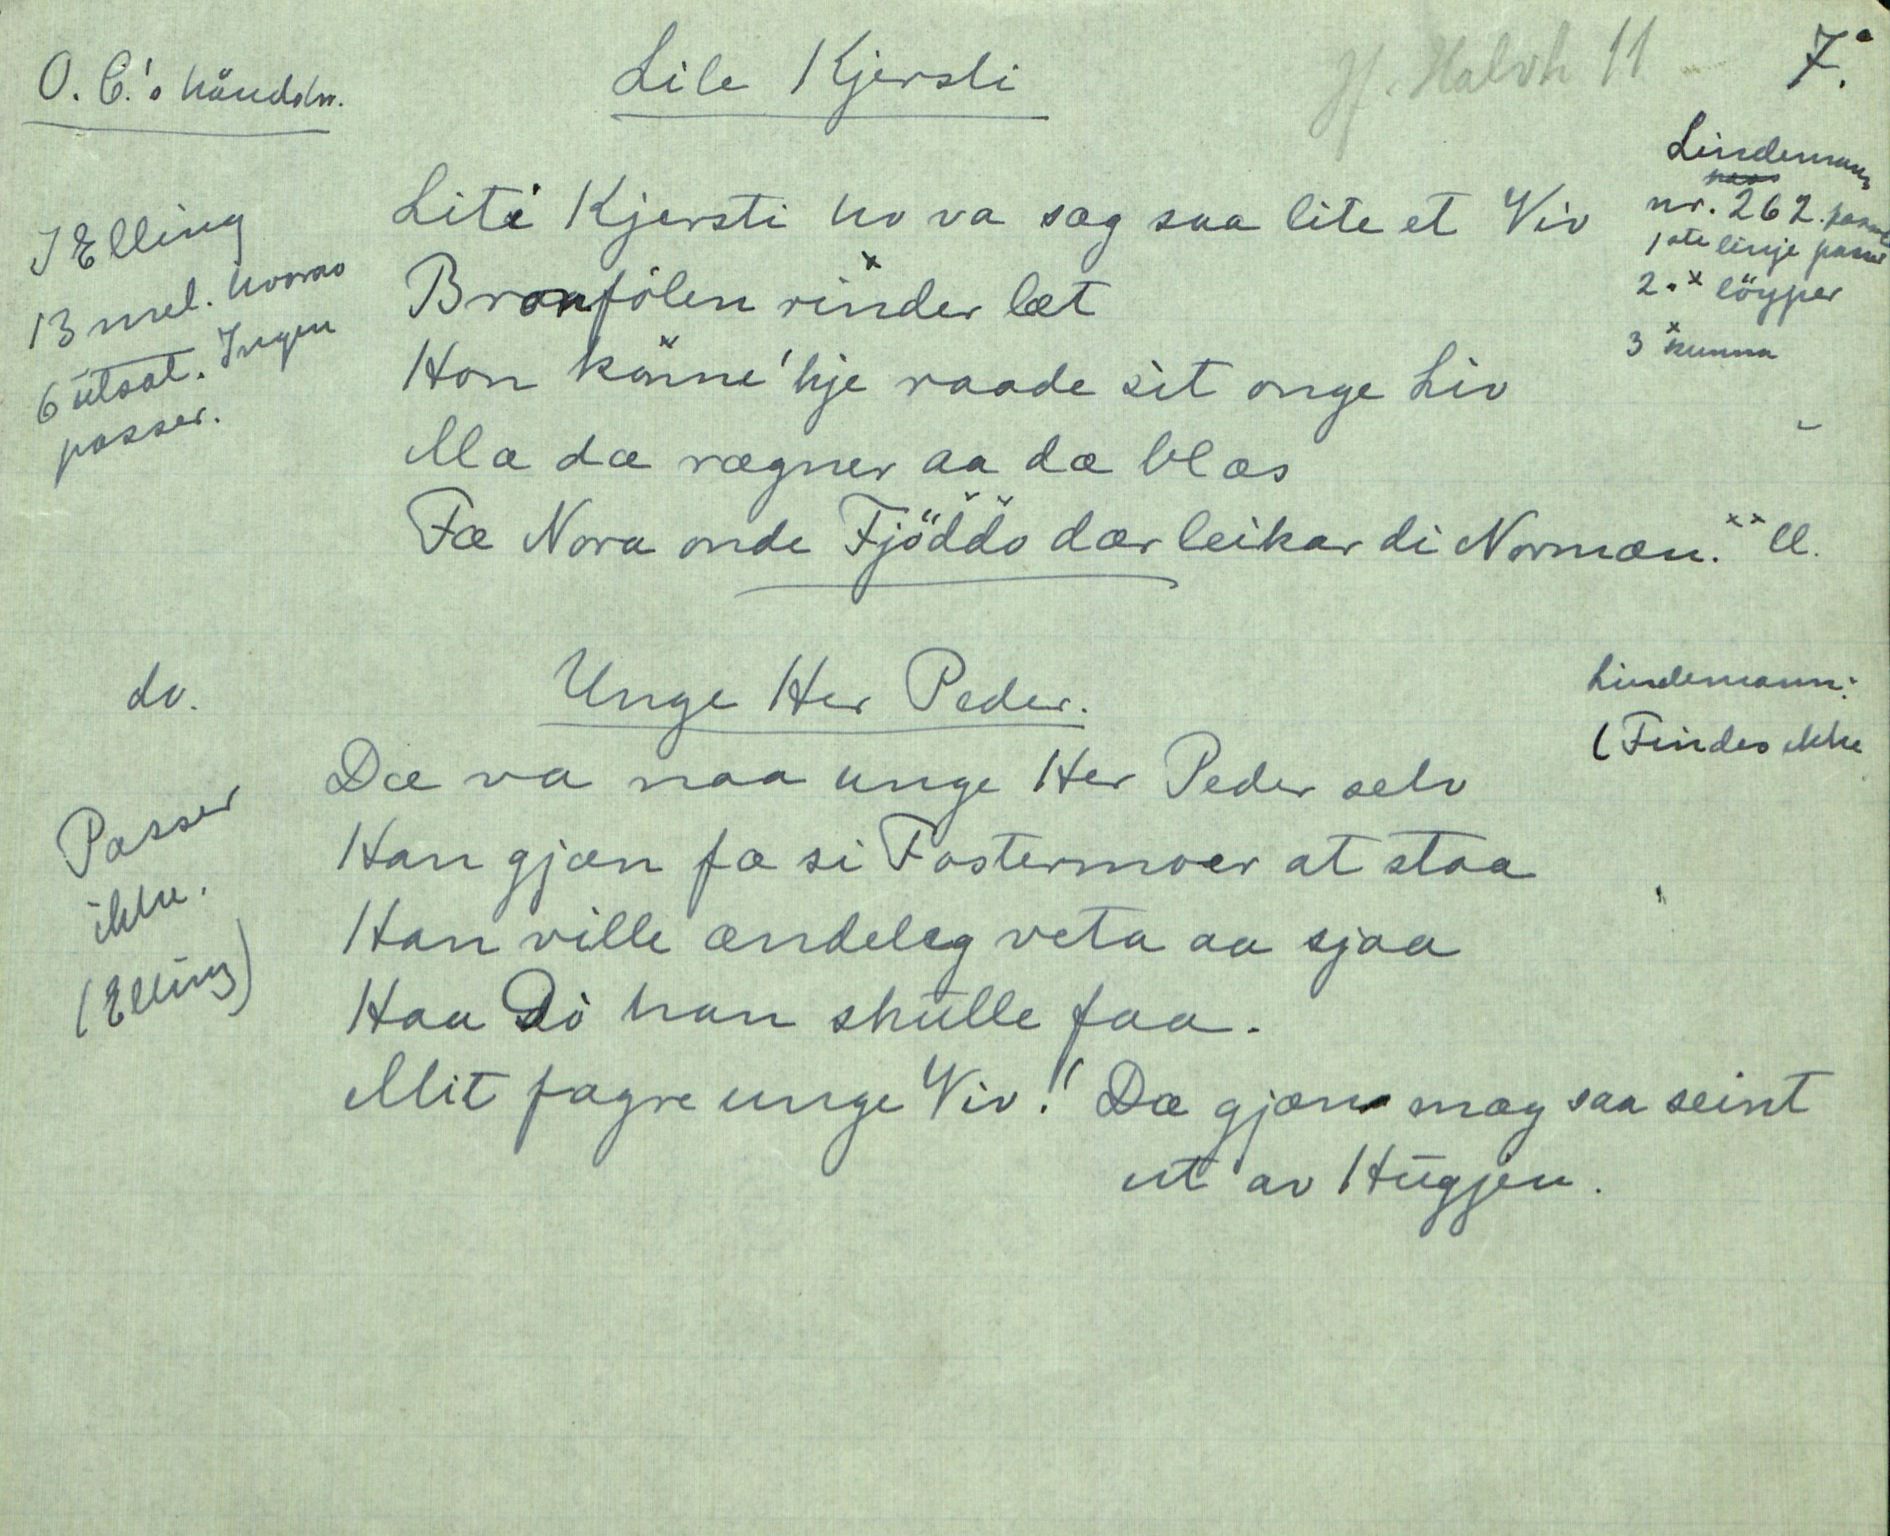 O. C.'s håndskr.
Lile Kjersti
Jf. Halvh 11
7.
Lindemann
nr. 262. passer
1ste linje passer
2.x löyper
3 x kunna
I Elling
13 mel. hvorav
6 utsat. Ingen
passer.
Lite Kjersti ho va sæg saa lite et Viv
Bronfólen rinder læt
Hon könne 'kje raade sit onge Liv
Mæ dæ rægner aa dæ blæs
Fæ Nora onde Fjöddo dær leikar di Normæn. xx ll.
do.
Unge Her Peder.
Lindemann:
(Findes ikke
Passer
ikke.
(Elling)
Dæ va naa unge Her Peder selv
Han gjæn fæ si Fostermoer at staa
Han ville ændeleg veta aa sjaa
Haa Dö han skulle faa.
Mit fagre unge Viv! Dæ gjæn mæg saa seint
ut av Hugjen.